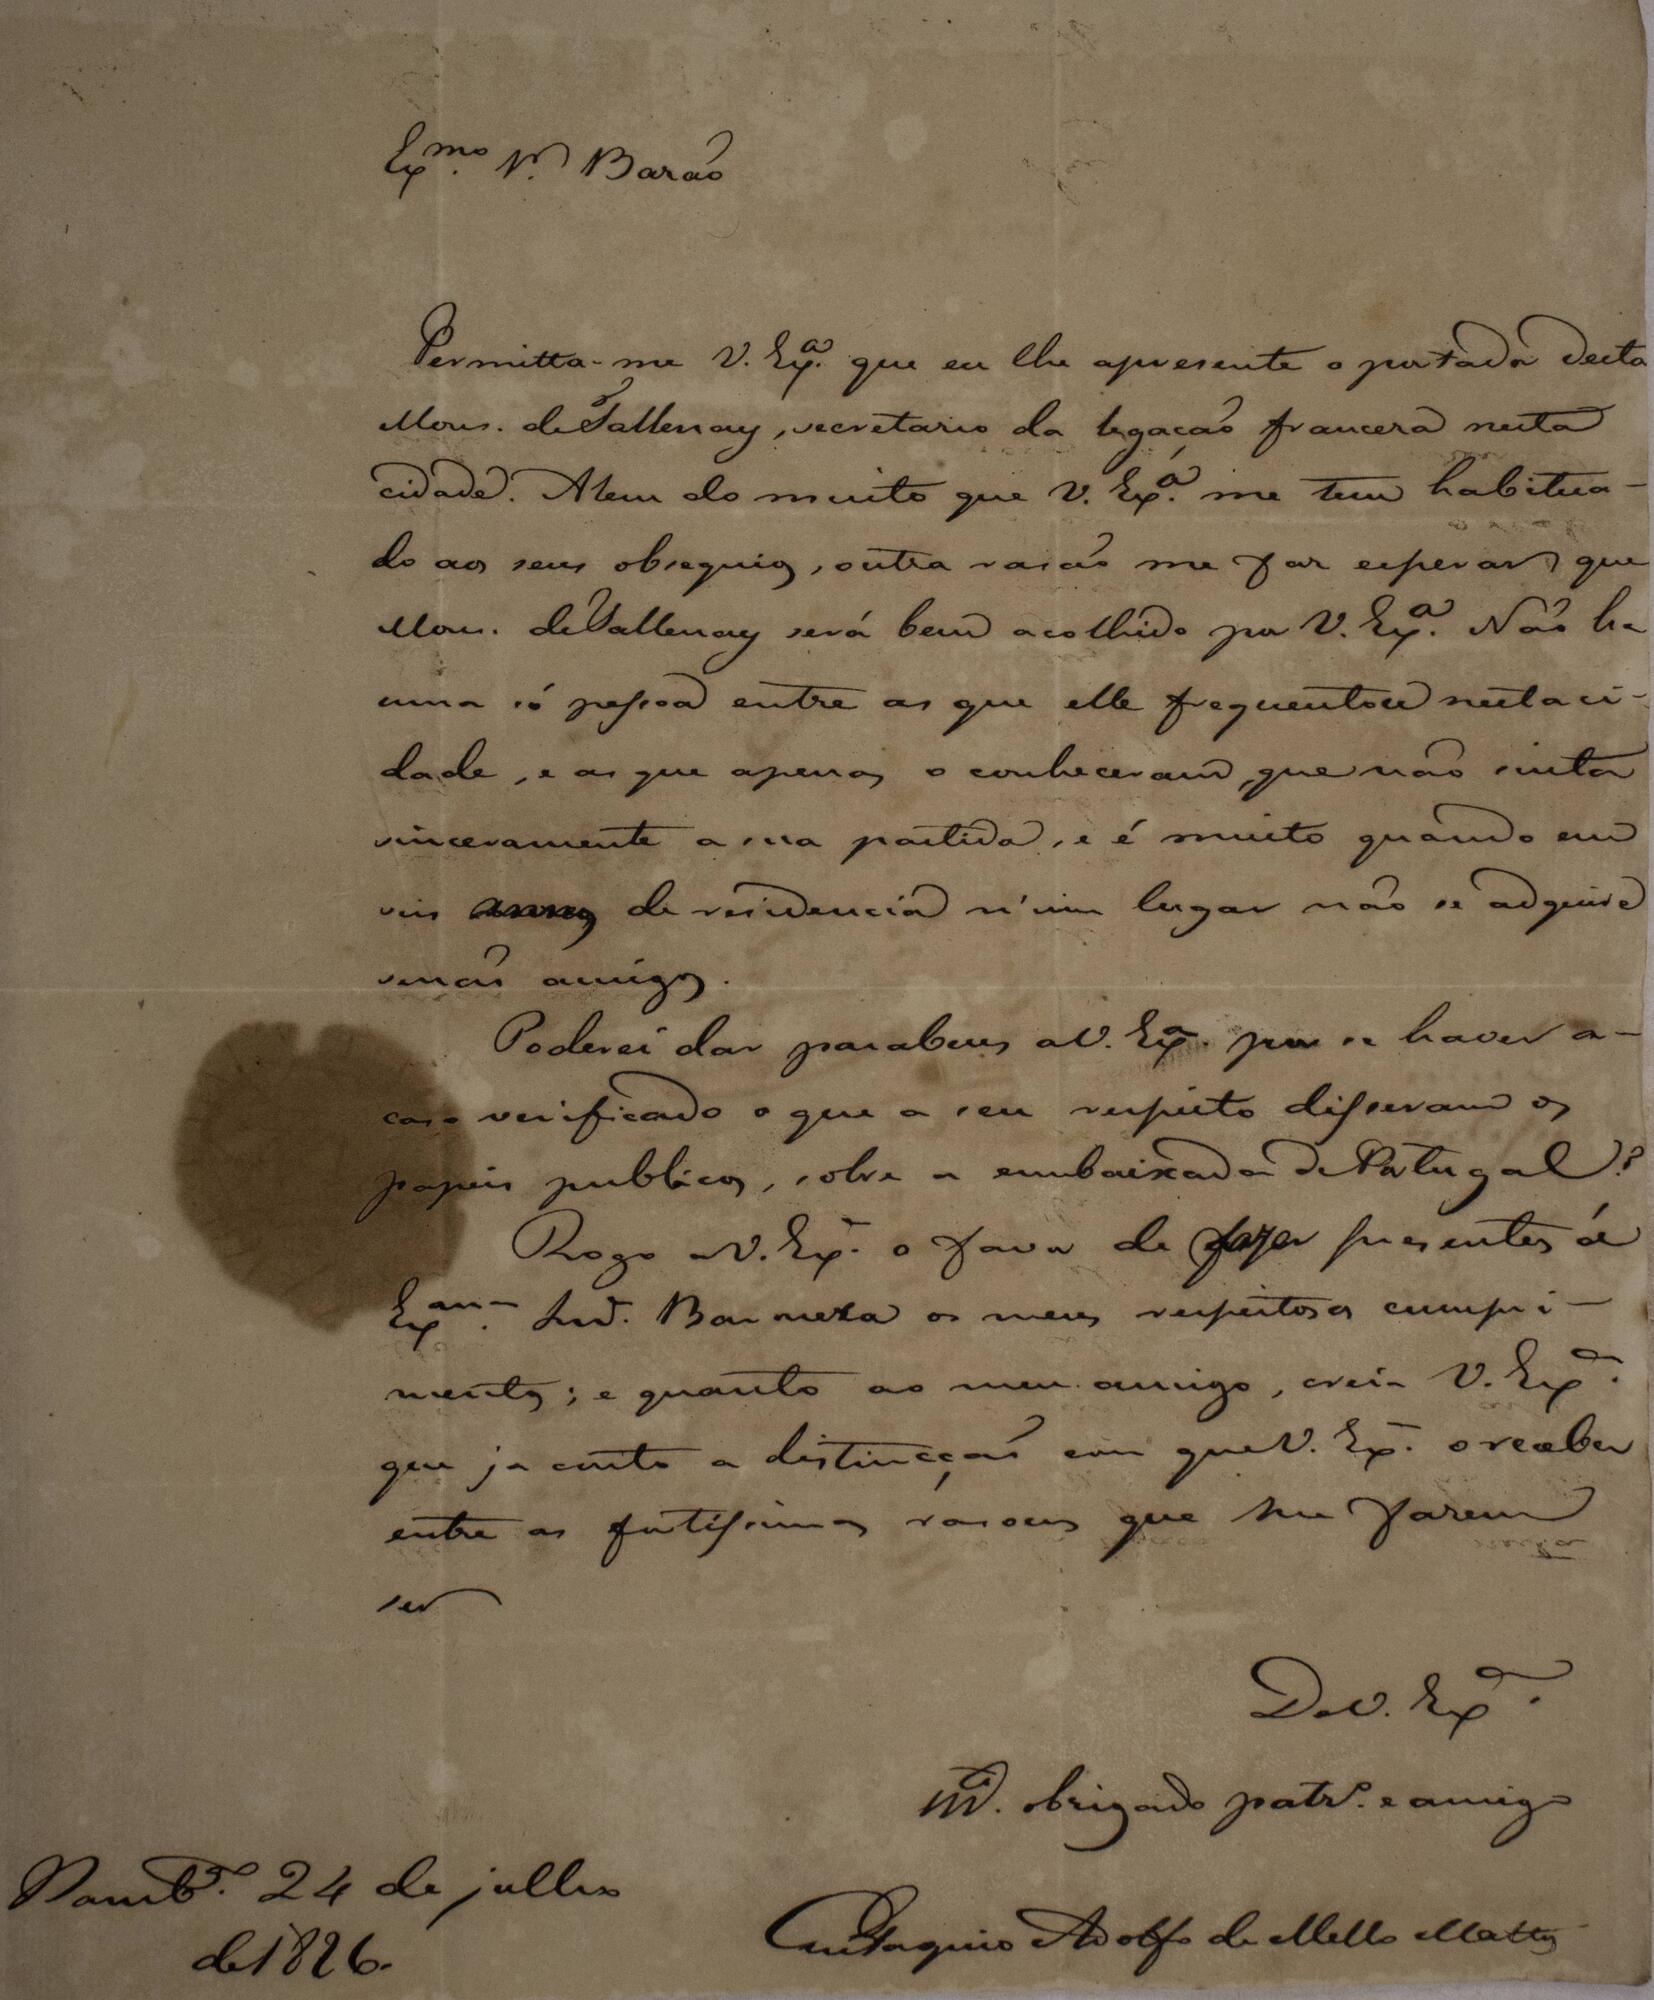 Ex.mo Sr. Barão
Permitta-me V. Ex.a que eu lhe apresente o portador desta
Mons. de Sallenay, secretario da legação franceza nesta
cidade. Alem do muito que V. Ex.a me tem habitua-
do aos seus obsequios, outra rasão me faz esperar que
Mons. de Sallenay será bem acolhido por V. Ex.a. Não ha
uma só pessoa entre as que elle frequentou nesta ci-
dade, e as que apenas o conheceram, que não sinta
sinceramente a sua partida, e é muito quando em
seis annos de residencia n'um lugar não se adquire
senão amigos.
Poderei dar parabens a V. Ex.a por se haver a-
caso verificado o que a seu respeito disseram os
papeis publicos, sobre a embaixada de Portugal?
Rogo a V. Ex.a o favor de fazer presentes á
Ex.ma Snr.a Baroneza os meus respeitosos cumpri-
mentos; e quanto ao meu amigo, creia V. Ex.a
que ja conto a distincção com que V. Ex.a o receber
entre as fortissimas rasoens que me fazem
ser
De V. Ex.a
m.to obrigado patr.o e amigo
Eustaquio Adolfo de Mello Mattos
Pernamb.co 24 de julho
de 1826.